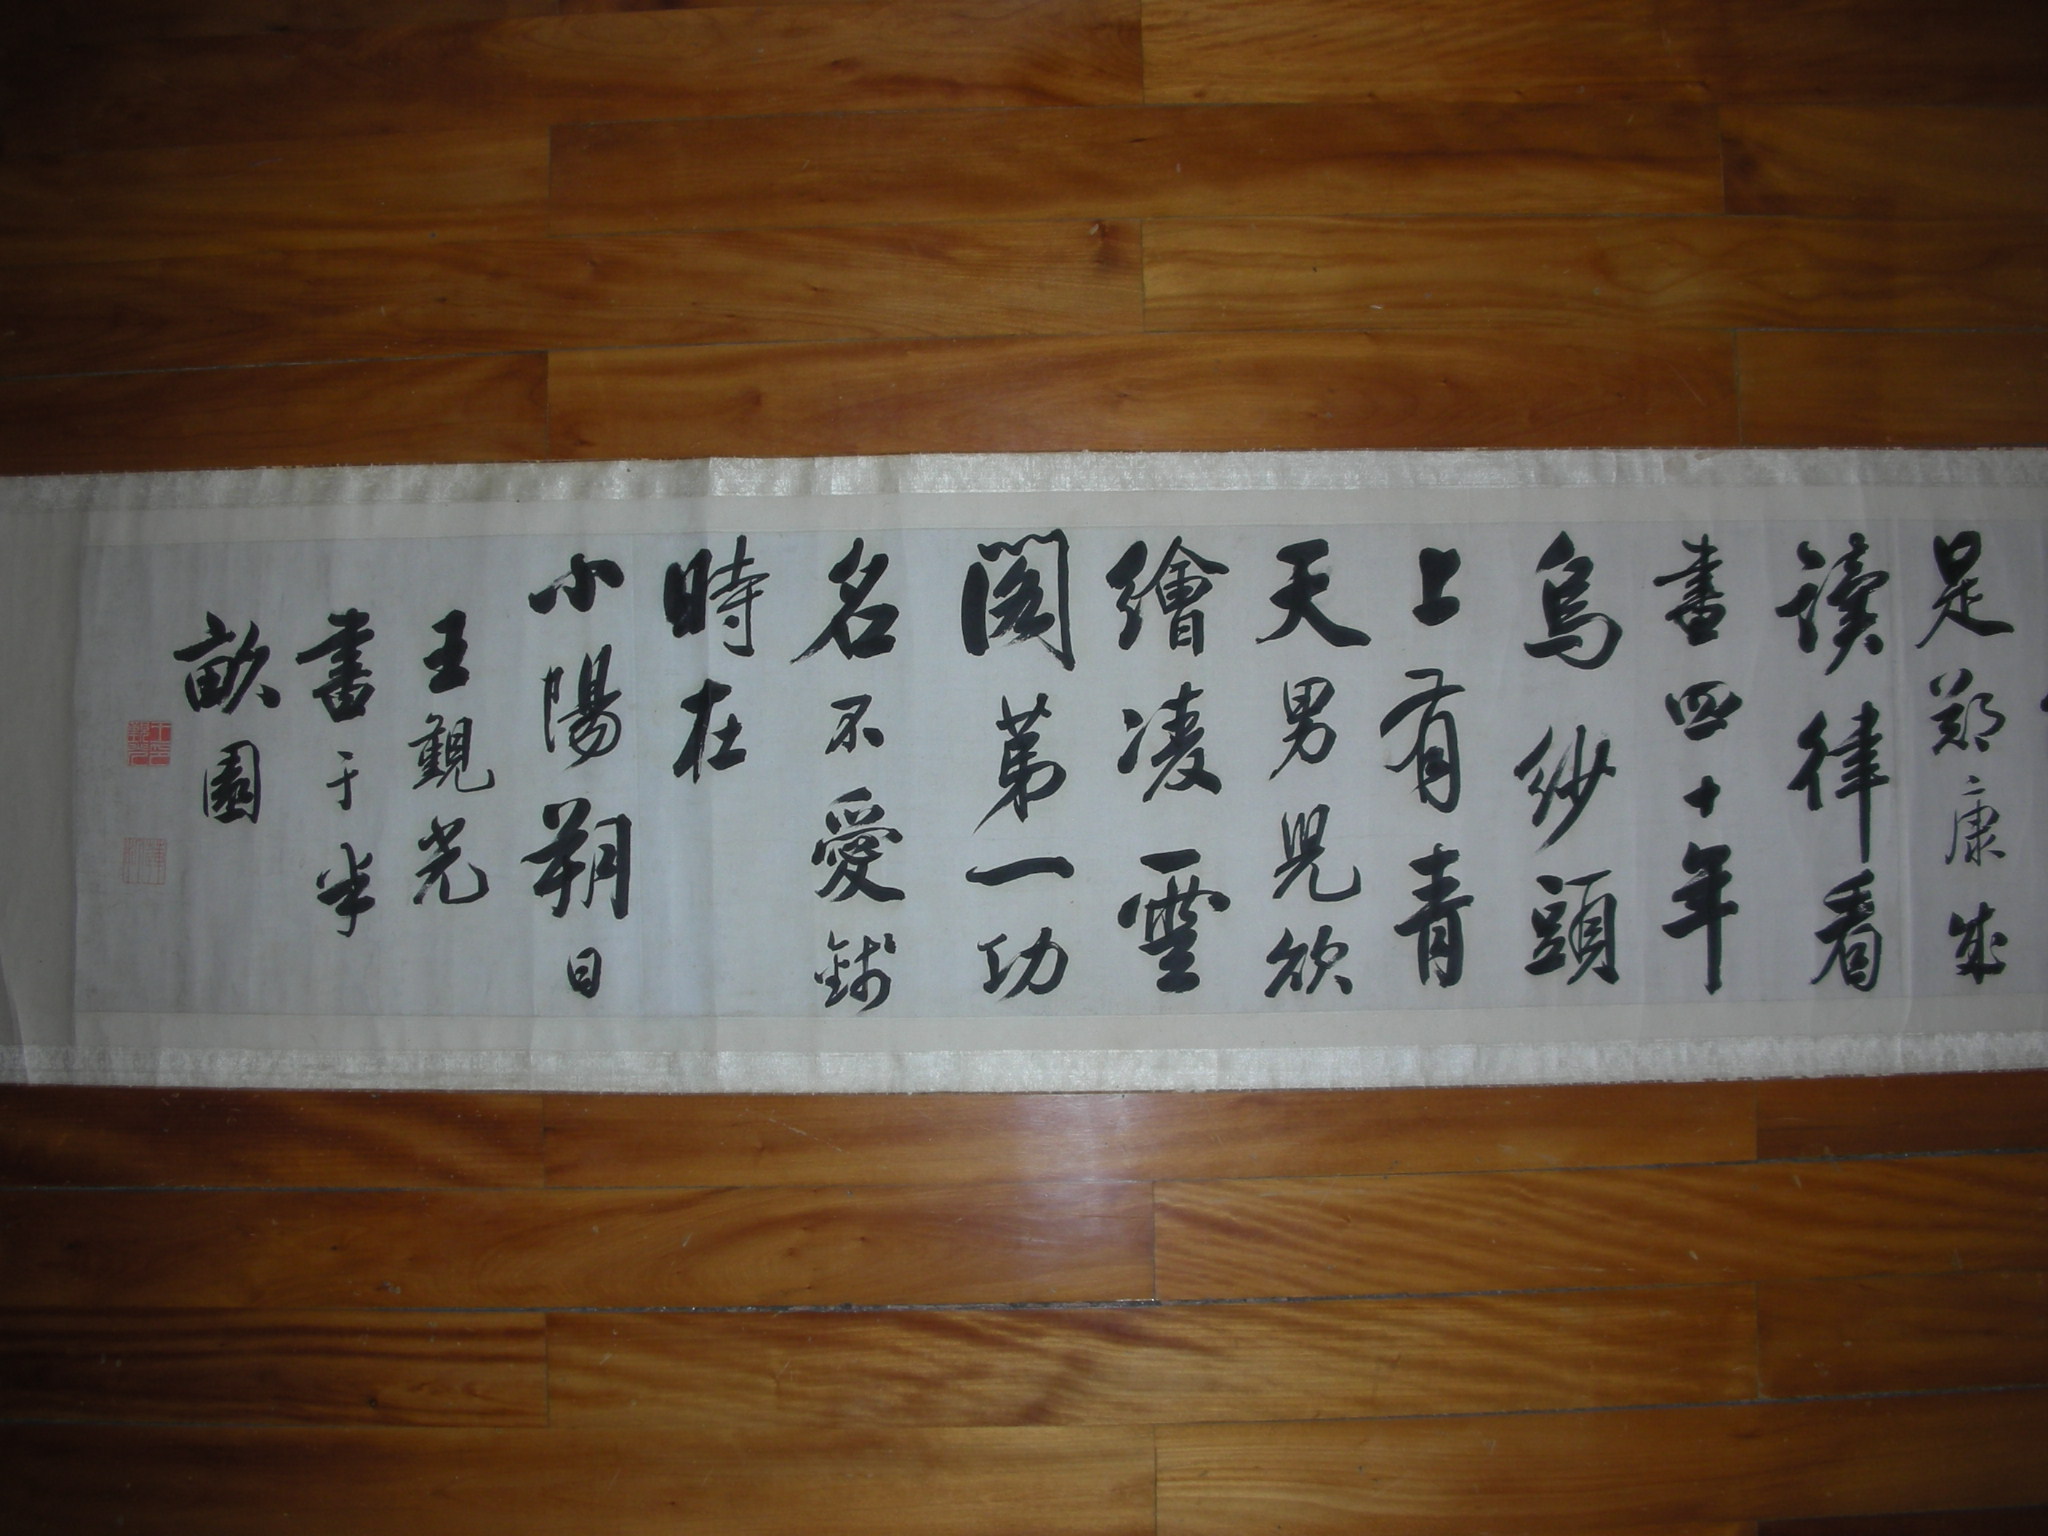 是鄭康成
讀律看
書四十年
烏紗頭
上有青
天男兒欲
繪凌雲
閣第一功
名不愛錢
時在
小陽朔日
王觀光
書于半
畝園